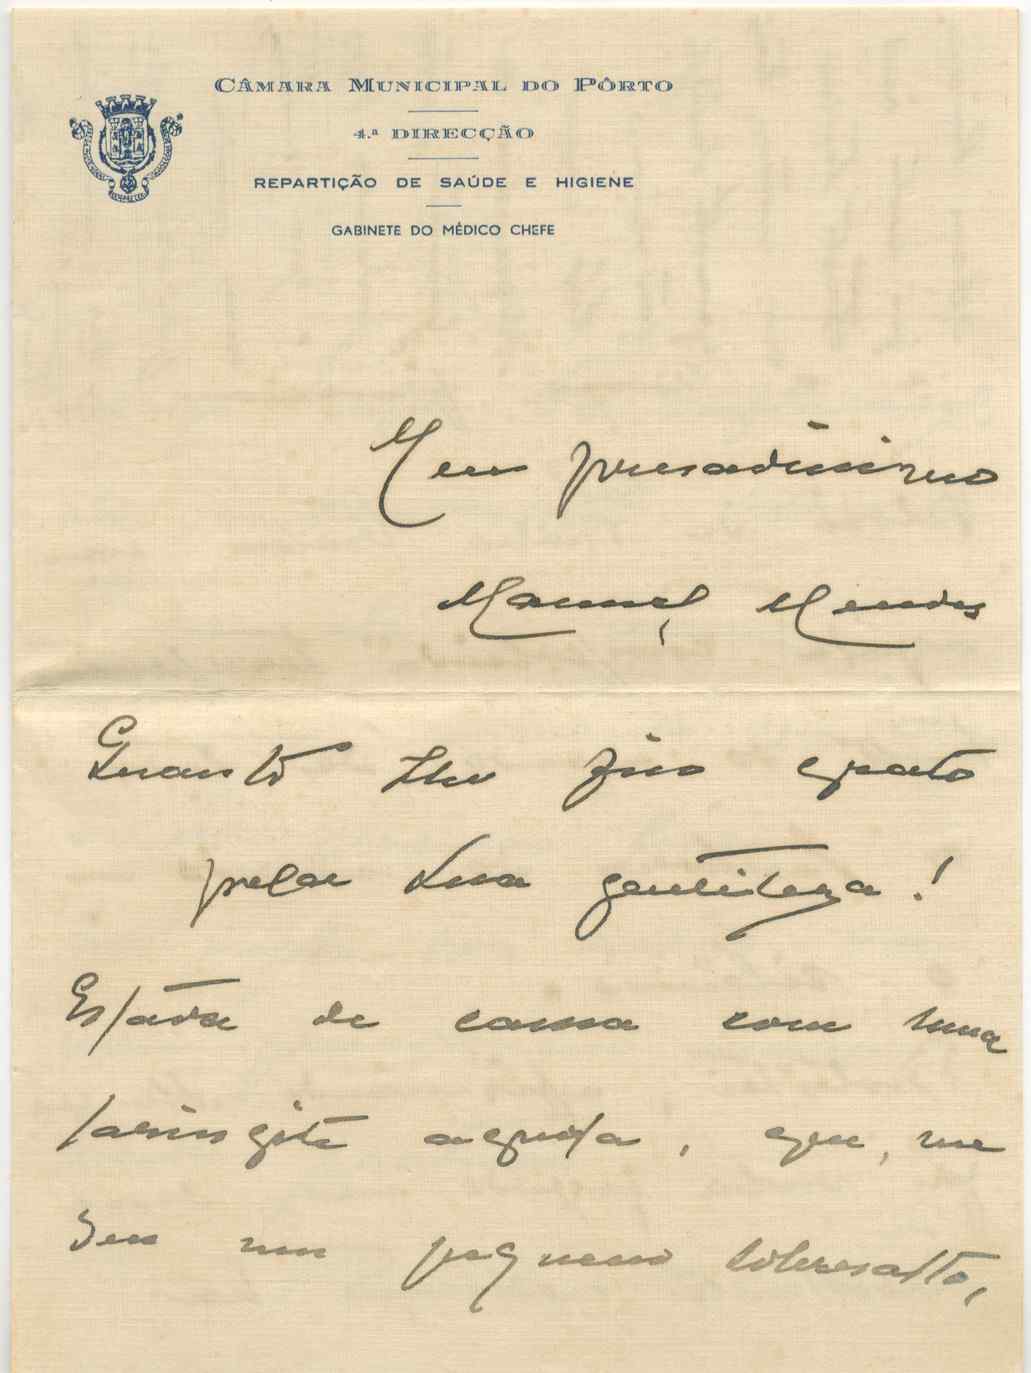 CÂMARA MUNICIPAL DO PÔRTO
4.ª DIRECÇÃO
REPARTIÇÃO DE SAÚDE E HIGIENE
GABINETE DO MÉDICO CHEFE
Meu presadissimo
Manuel Mendes
Quanto lhe fico grato
pela sua gentileza!
Estava de cama com uma
laringite aguda, que, me
deu um pequeno sobresalto,